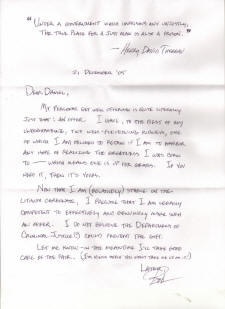 "Under a government which imprisons any unjustly,
the true place for a just man is also a prison."
— Henry David Thoreau
21 December '05
Dear Daniel,
My
get well offering is quite literally
just that: an offer. I have, to the best of my
understanding, two well-functioning kidneys, one
of which I am
to retain if I am to harbor
any hope of realizing the
I was born
to — which means one is up for grabs. If you
want it, then it's yours.
Now that I am (relatively) stable on the
lithium carbonate, I believe that I am legally
competent to effectively and genuinely make such
an offer. I do not believe the Department of
Criminal Justice(?) could prevent the gift.
Let me know — in the meantime I'll take good
care of the pair. (I'm
you want me to
)
Later,